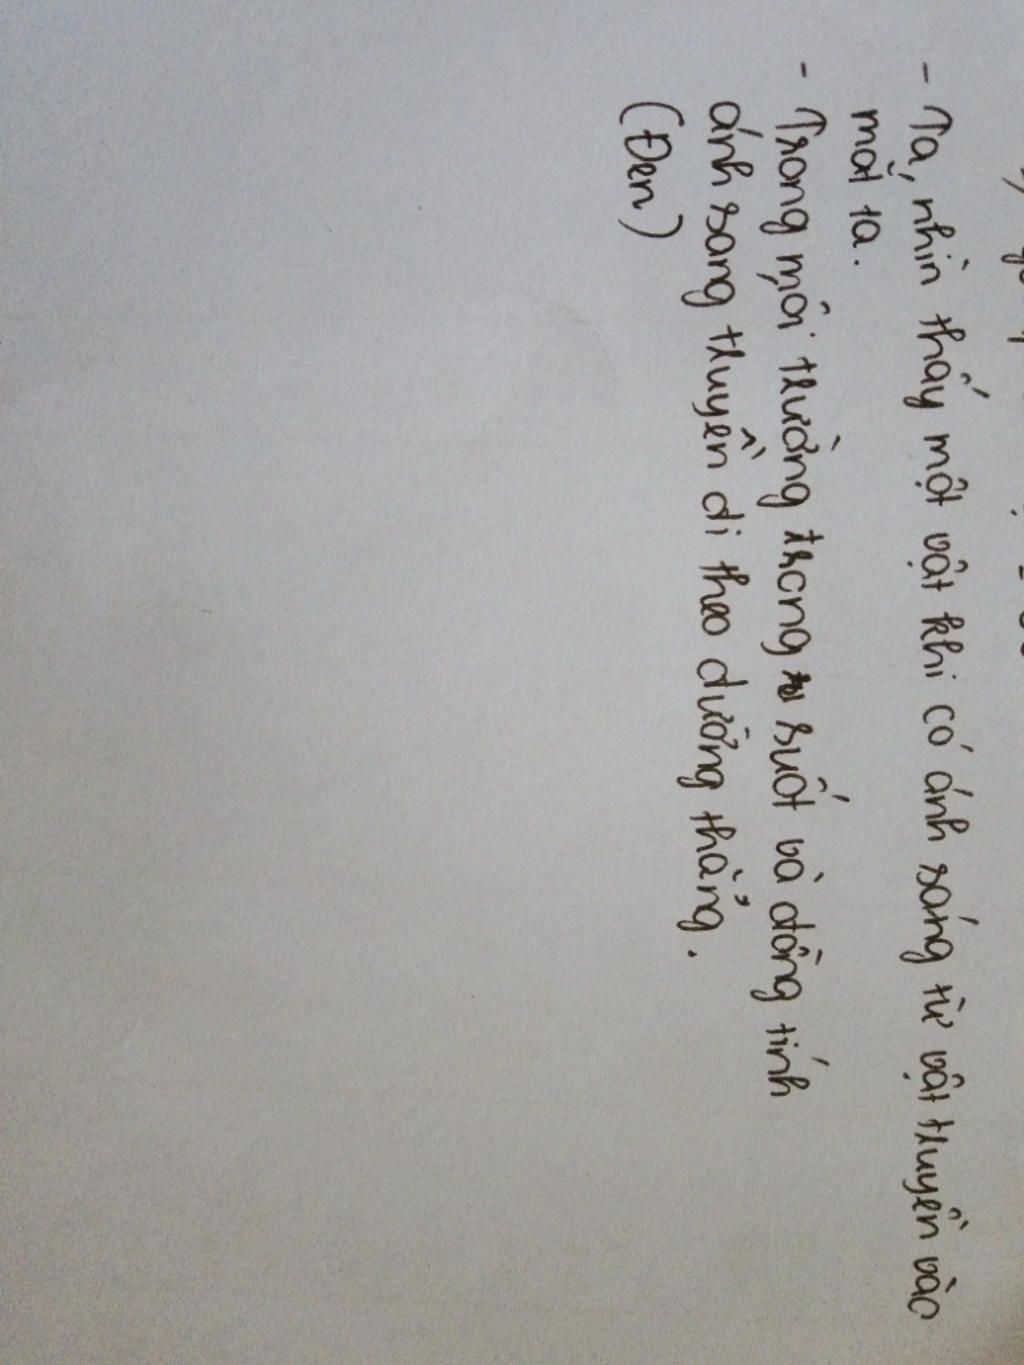 - Ta nhìn thấy một vật khi có ánh sáng từ vật truyền vào
mắt ta.
- Trong môi trường trong suốt và đồng tính
ánh sang truyền di theo dường thẳng.
(Đen)